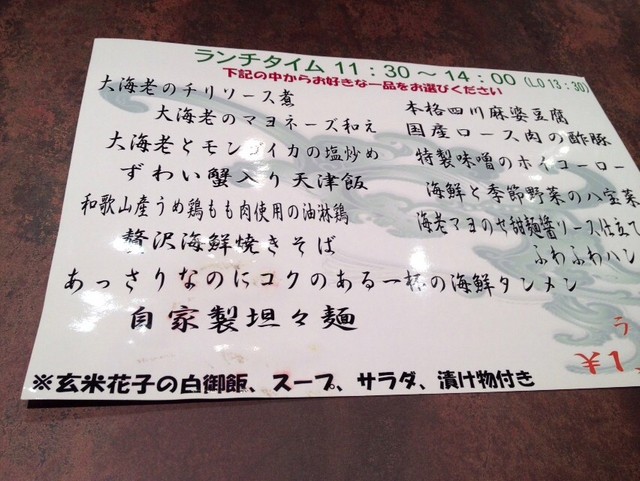 ランチタイム 11：30～14：00（L.O 13：30）
下記の中からお好きな一品をお選びください
大海老のチリソース煮
大海老のマヨネーズ和え
大海老とモンゴイカの塩炒め
ずわい蟹入り天津飯
和歌山産うめ鶏もも肉使用の油淋鶏
贅沢海鮮焼きそば
あっさりなのにコクのある一杯の海鮮タンメン
自家製坦々麺
本格四川麻婆豆腐
国産ロース肉の酢豚
特製味噌のホイコーロー
海鮮と季節野菜の八宝菜
海老マヨのせ甜麺醤ソース仕立て
ふわふわハン
う
¥1
※玄米花子の白御飯、スープ、サラダ、漬け物付き